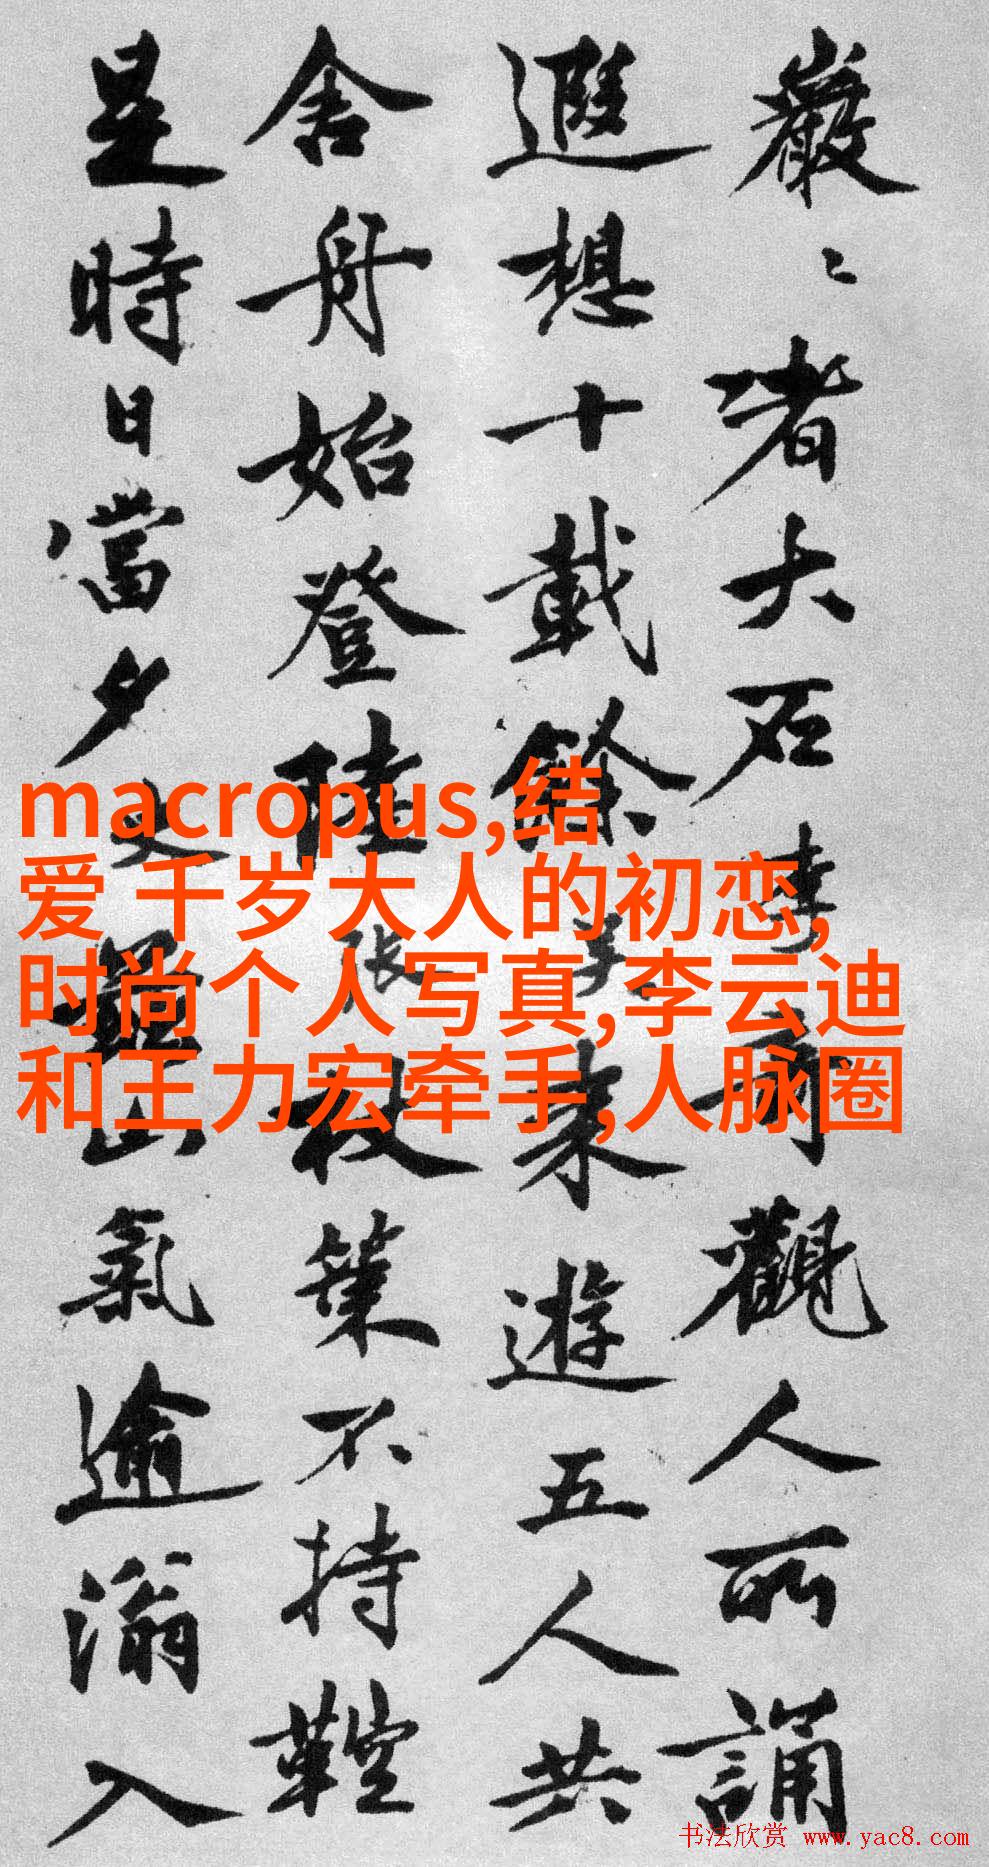 巖〻者大石奇觀人所誦
遐想十載餘來遊五人共
舍舟始登陸杖策不持鞚
是時日當夕山氣逾滃入
macropus,结
爱 千岁大人的初恋,
时尚个人写真,李云迪
和王力宏牵手,人脉圈
书法欣赏 www.yac8.com